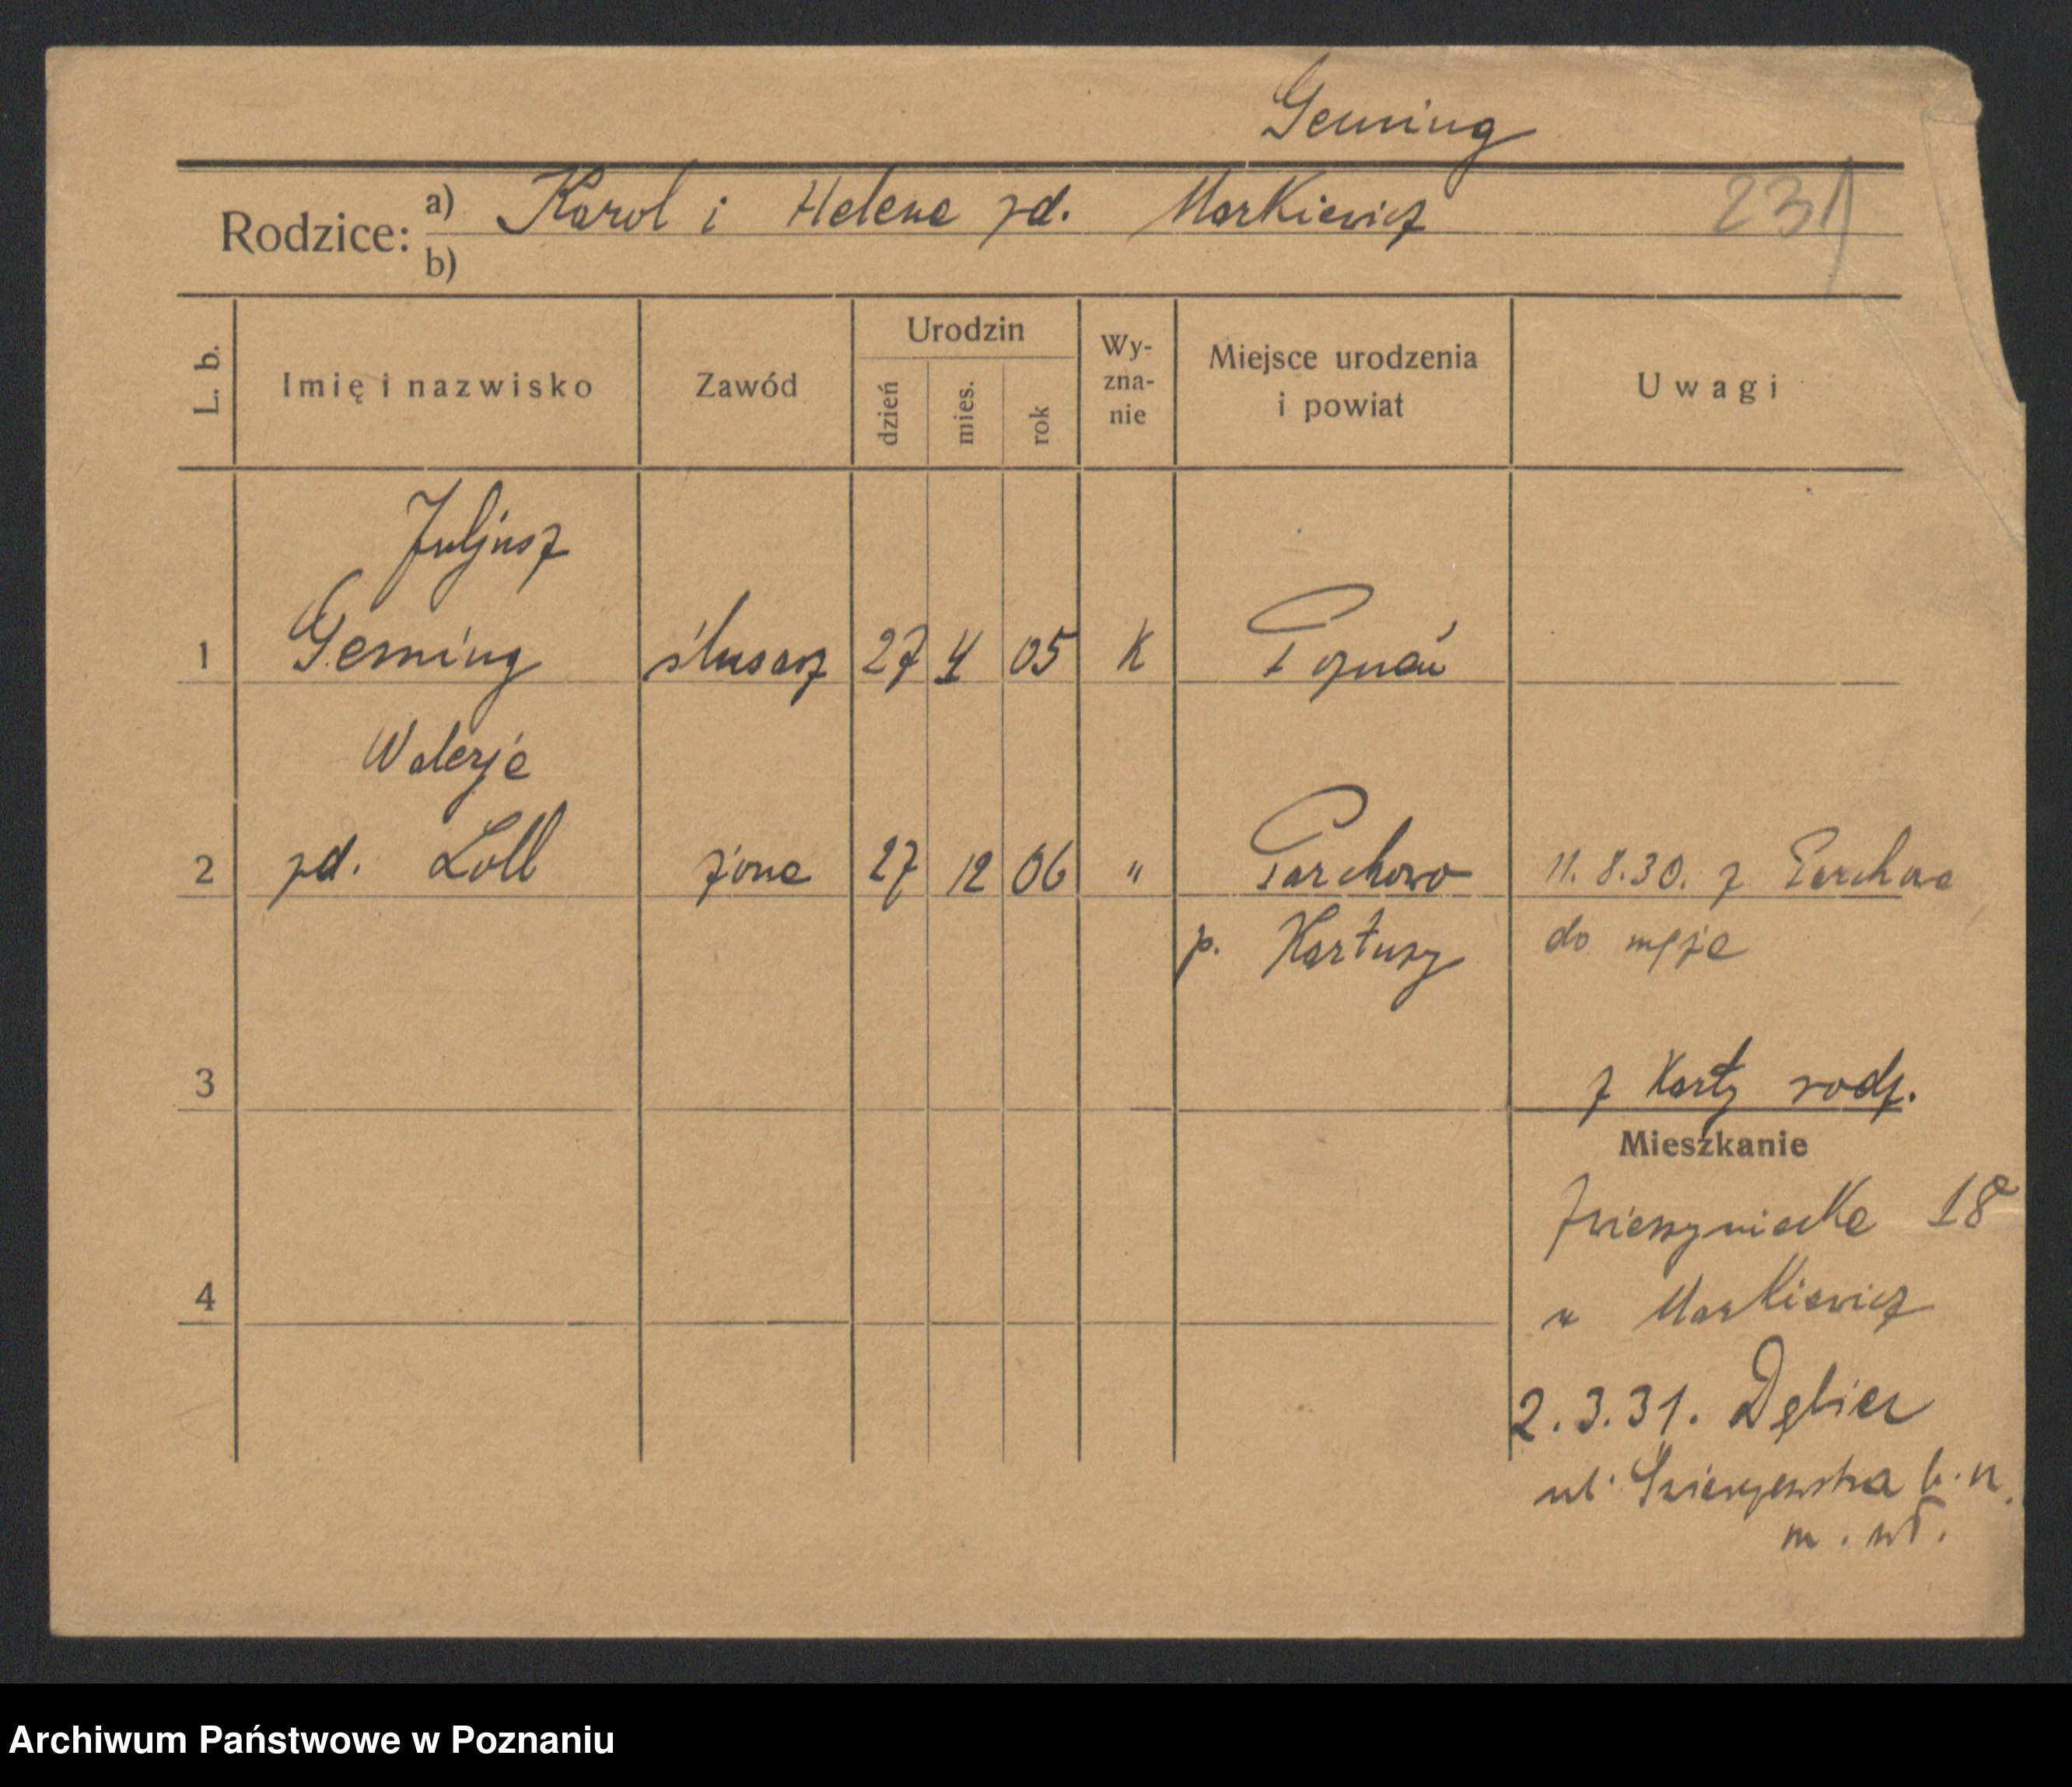 Genning
Rodzice: a) Karol i Helena zd. Markiewicz 231
b)
L. b. Imię i nazwisko Zawód Urodzin dzień mies. rok Wy-zna-nie Miejsce urodzenia i powiat Uwagi
Juljusz
1 Genning ślusarz 27 4 05 K Poznań
Walerja
2 zd. Loll żona 27 12 06 " Parchowo 11.8.30. z Parchowa
p. Kartuzy do męża
3 z Karty rodz.
Mieszkanie
Zwierzyniecka 18
4 u Markiewicz
2.3.31. Dębiec
ul. b. n.
m. wł.
Archiwum Państwowe w Poznaniu